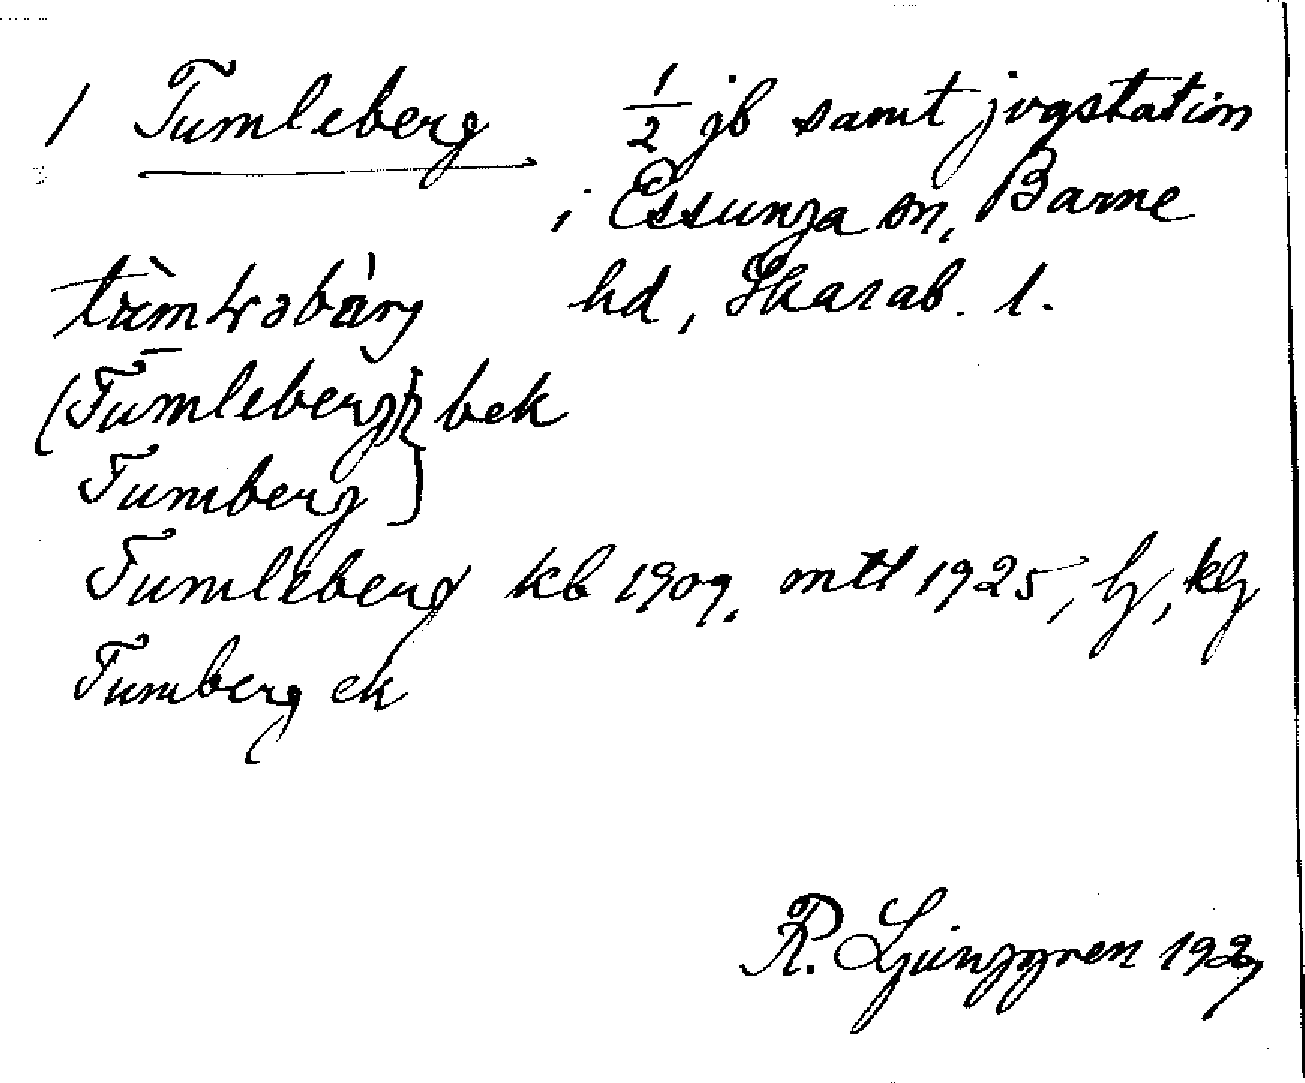 1 Tumleberg ½ jb samt jvgstation
i Essunga sn, Barne
hd, Skarab. l.
(Tumleberg) } bek
Tumberg }
Tumleberg kb 1909, mtl 1925, lj, klj
Tumberg ek
R. Ljunggren 1927